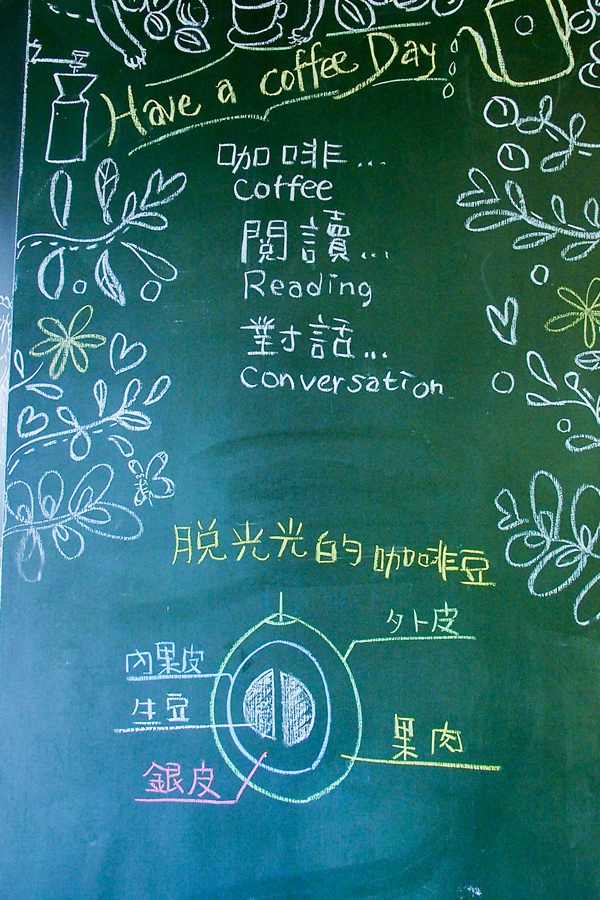 Have a coffee Day
咖啡...
Coffee
閱讀...
Reading
對話...
Conversation
脫光光的咖啡豆
外皮
內果皮
生豆
果肉
銀皮